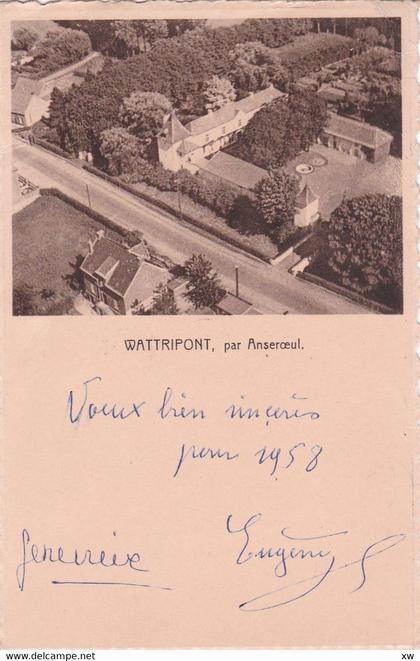 WATTRIPONT, par Anserœul.
Voeux bien sincères
pour 1958
Eugène
delcampe.net
xw